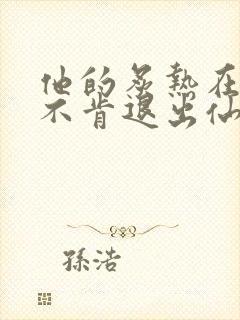 他的炙热在
不肯退出仙
孫浩